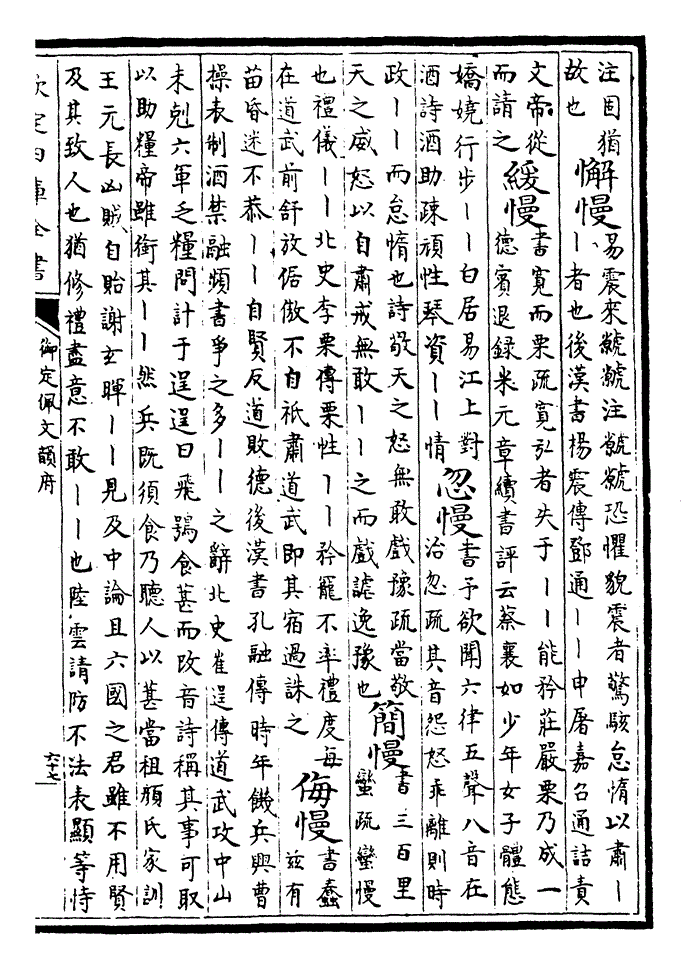 注固猶
故也
懈慢
易震來虩虩注虩虩恐懼貌震者驚駭怠惰以肅丨
丨者也後漢書楊震傳鄧通丨丨申屠嘉召通詰責
文帝從
而請之
緩慢
書寬而栗疏寬弘者失于丨丨能矜莊嚴栗乃成一
德賓退録米元章續書評云蔡襄如少年女子體態
嬌嬈行步丨丨白居易江上對
酒詩酒助疎頑性琴資丨丨情
忽慢
書予欲聞六律五聲八音在
治忽疏其音怨怒乖離則時
政丨丨而怠惰也詩敬天之怒無敢戲豫疏當敬
天之威怒以自肅戒無敢丨丨之而戲謔逸豫也
簡慢
書三百里
蠻疏蠻慢
也禮儀丨丨北史李栗傳栗性丨丨矜寵不率禮度每
在道武前舒放倨傲不自祇肅道武即其宿過誅之
侮慢
書蠢
兹有
苗昏迷不恭丨丨自賢反道敗德後漢書孔融傳時年饑兵興曹
操表制酒禁融頻書爭之多丨丨之辭北史崔逞傳道武攻中山
未剋六軍乏糧問計于逞逞曰飛鴞食葚而改音詩稱其事可取
以助糧帝雖銜其丨丨然兵既須食乃聽人以葚當租顔氏家訓
王元長凶賊自貽謝玄暉丨丨見及中論且六國之君雖不用賢
及其致人也猶修禮盡意不敢丨丨也陸雲請防不法表顯等恃
欽定四庫全書
御定佩文韻府
六十七